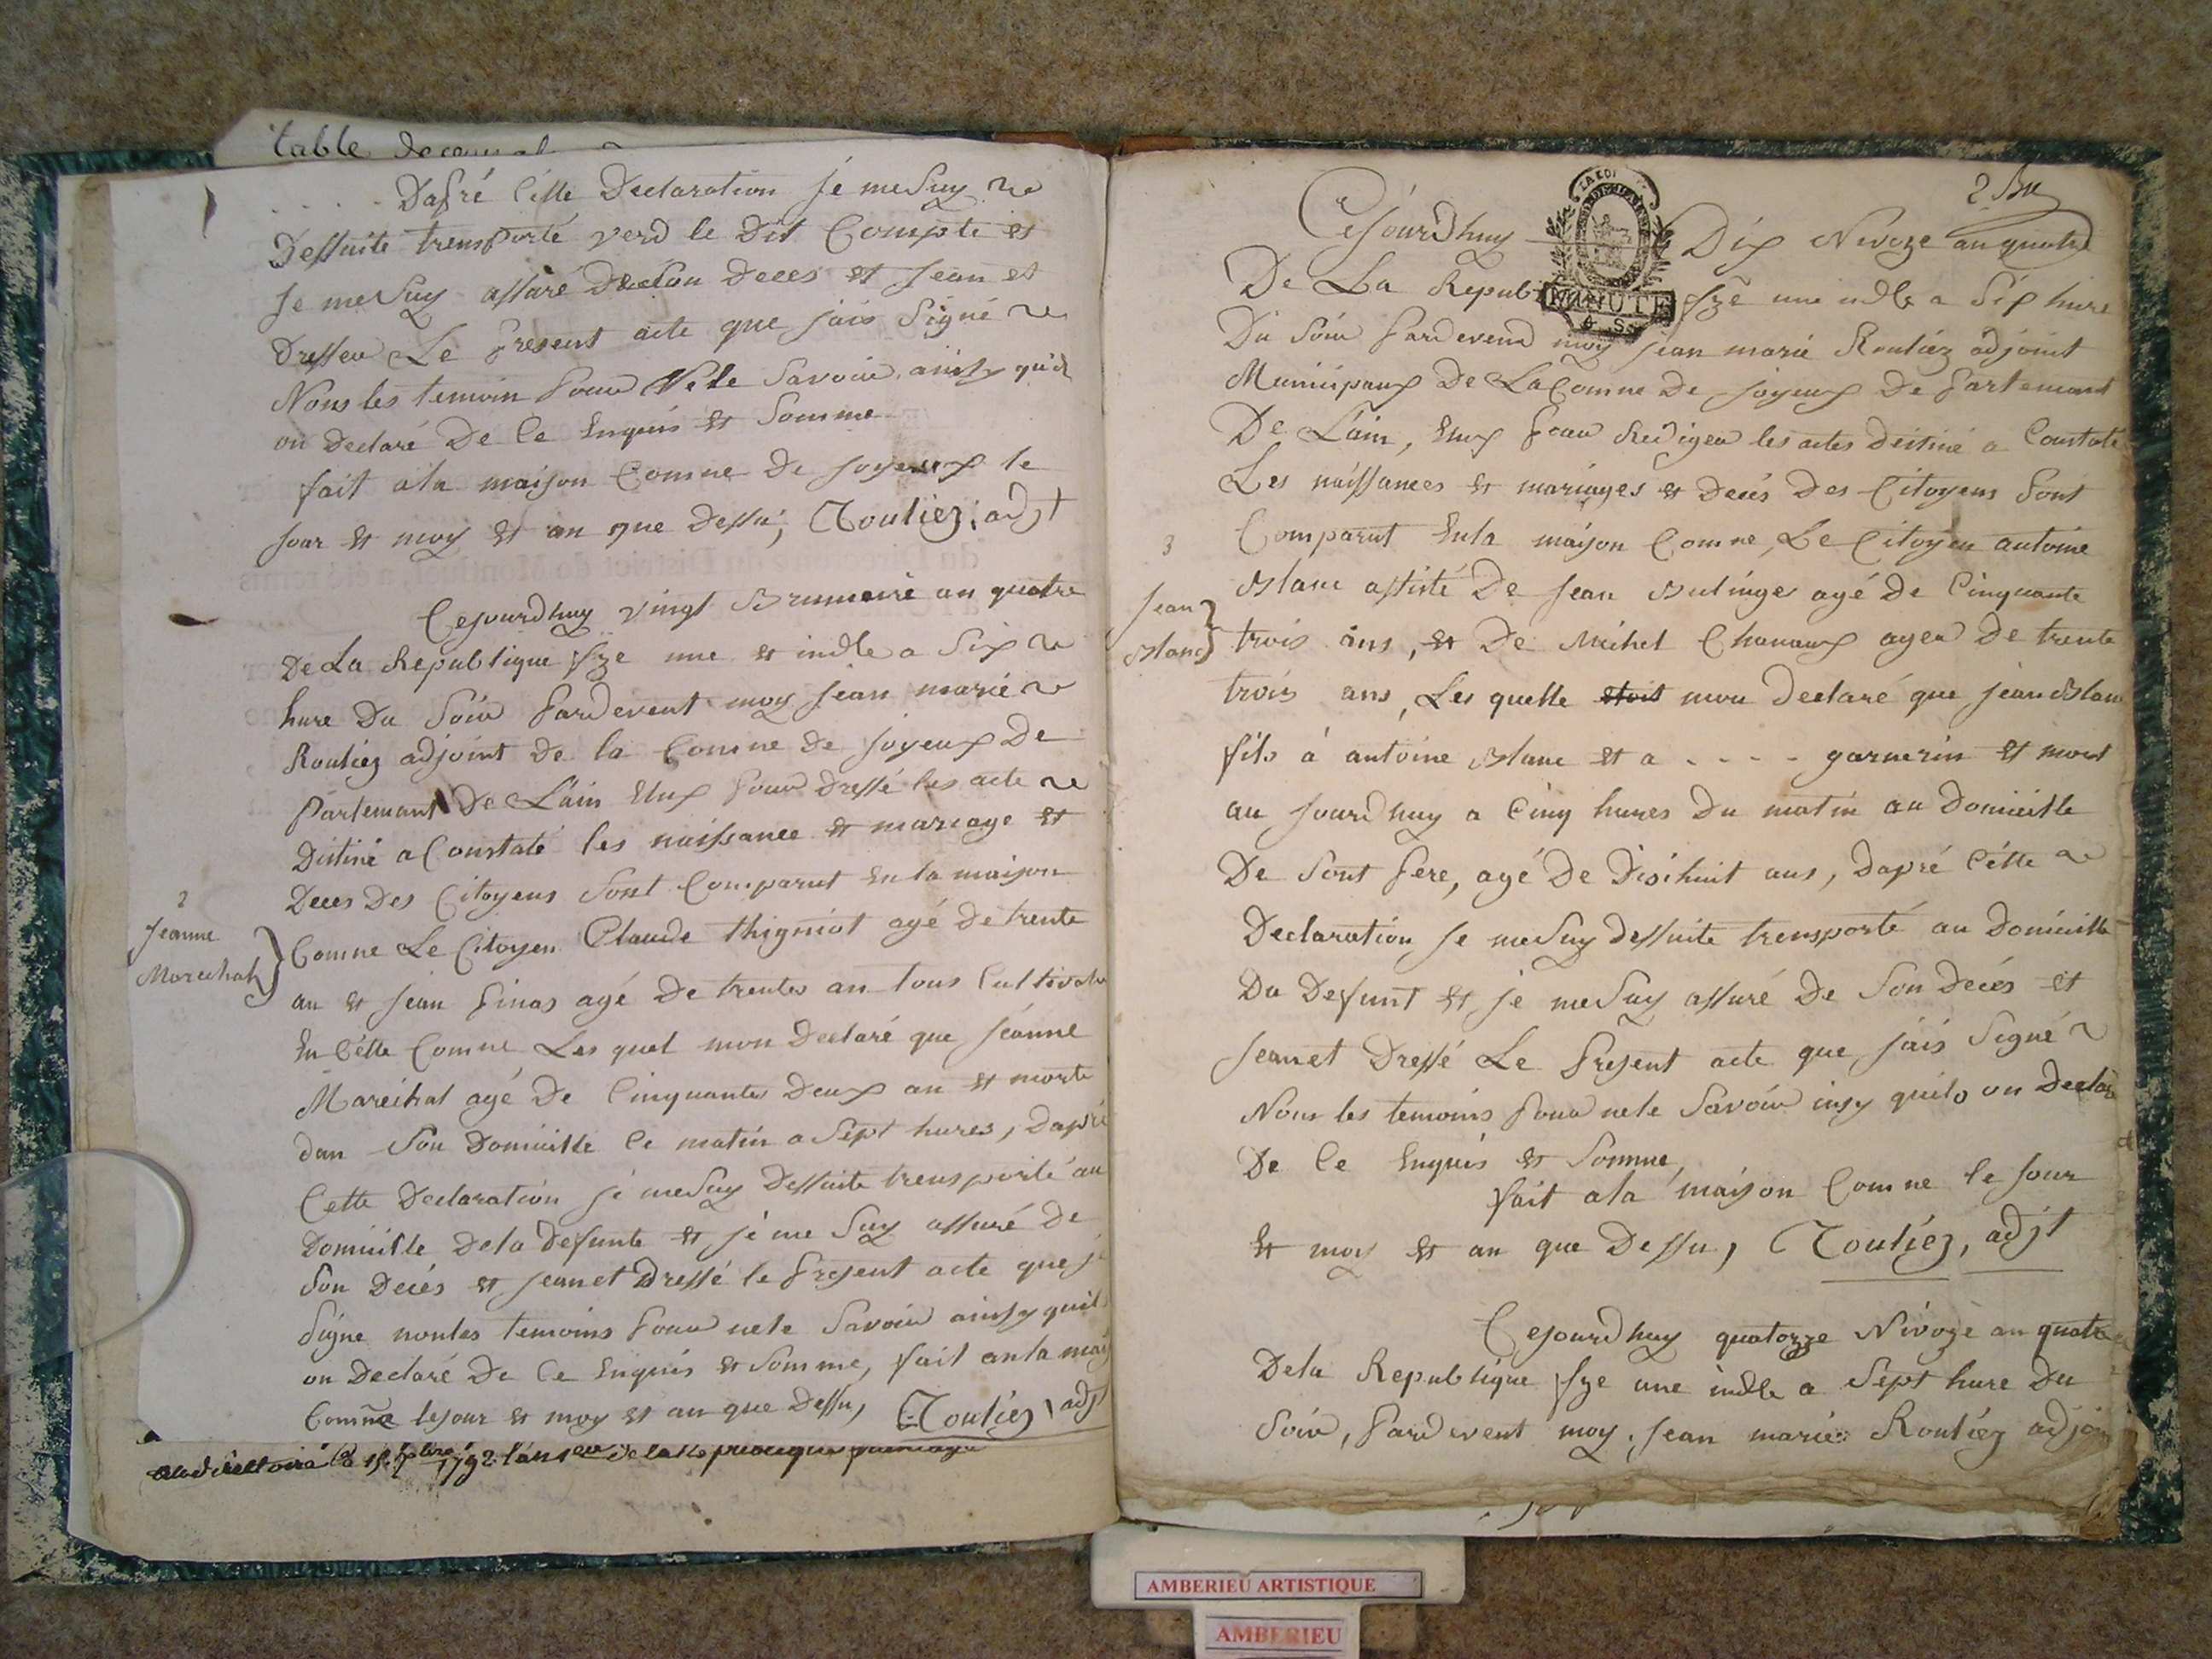 table
Dapré Cétte Declaration je me Suy
Dessuite trensporté verd le Dit Compte et
Je me Suy assuré De Son Deces et Jean et
Dresseu Le present acte que jais Signé
Nons les temoin pour Nele Savoir ainsy quil
on Declaré De Ce Enquis et Somme
fait ala maison Comne de joyeux le
jour et moy et an que Dessu, Rouliez, adjt
Cejourdhuy vingt Brumaire an quatre
De La Republique fze une et indle a Six
hure Du Soir pardevent moy jean marie
Rouliez adjoint de la Comne de joyeux De
Partemant De Lain Elux pour Dressé les acte
Distiné a Constaté les naissance et mariage et
Deces Des Citoyens Sont Comparut En la maison
2
Jeanne
Marechal
Comne Le Citoyen Claude thigniot agé de trente
an et jean pinas agé De trentes an tous Cultivateu
En Cétte Comne Les quel mon Declaré que jéanne
Maréchal agé De Cinquantes Deux an et morte
dan Son Domicille Ce matin a Sept hures, Dapré
Cette Declaration je me Suy Dessuite trensporté au
Domicille Dela defunte et jé me Suy assuré De
Son Decés et jeanet Dressé le present acte que j
Signe nontes temoins pour nele Savoir ainsy quil
on Declaré De Ce Enquis et Somme, fait an la mai
Comñe lejour et moy et an que Dessu, Rouliez, adjt
1792 lan 1er de la
2
Cejourdhuy Dix Nivoze an quatre
LA LOI
MINUTE
4 S.
De La Republ fze une indle a Six hure
Du Soir pardevend moy jean marie Rouliez adjoint
Municipaux De La Comne De joyeux De partemant
De Lain, Elux pour Redigeu les actes destiné a Constaté
Les naissances et mariages et Decés Des Citoyens Sont
3
Jean
Blanc
Comparut Enla maison Comne, Le Citoyen antoine
Blanc assisté De jean Bulinges agé De Cinquante
trois ans, et De Michel Chanaux ageu De trente
trois ans, Les quelle etoit mon declaré que jean Blanc
fils á antoine Blanc et a - - - - garnerin et mort
au jourdhuy a Cinq hures Du matin au Domicille
De Sont pere, agé De Disihuit ans, Dapré Cétte
Declaration je me Suy dessuite trensporté au Domicille
Du Defunt et je me Suy assuré De Son Decés et
jeanet Dressé Le present acte que jais Signé
Nons les temoins pour nele Savoir insy quils on Declaré
De Ce Enquis et Somme,
fait ala maison Comne le jour
et moy et an que Dessu, Rouliez, adjt
Cejourdhuy quatorze Nivoze an quatre
Dela Republique fze une indle a Sept hure Du
Soir, pardevent moy, jean marie Rouliez adjoin
AMBERIEU ARTISTIQUE
AMBERIEU